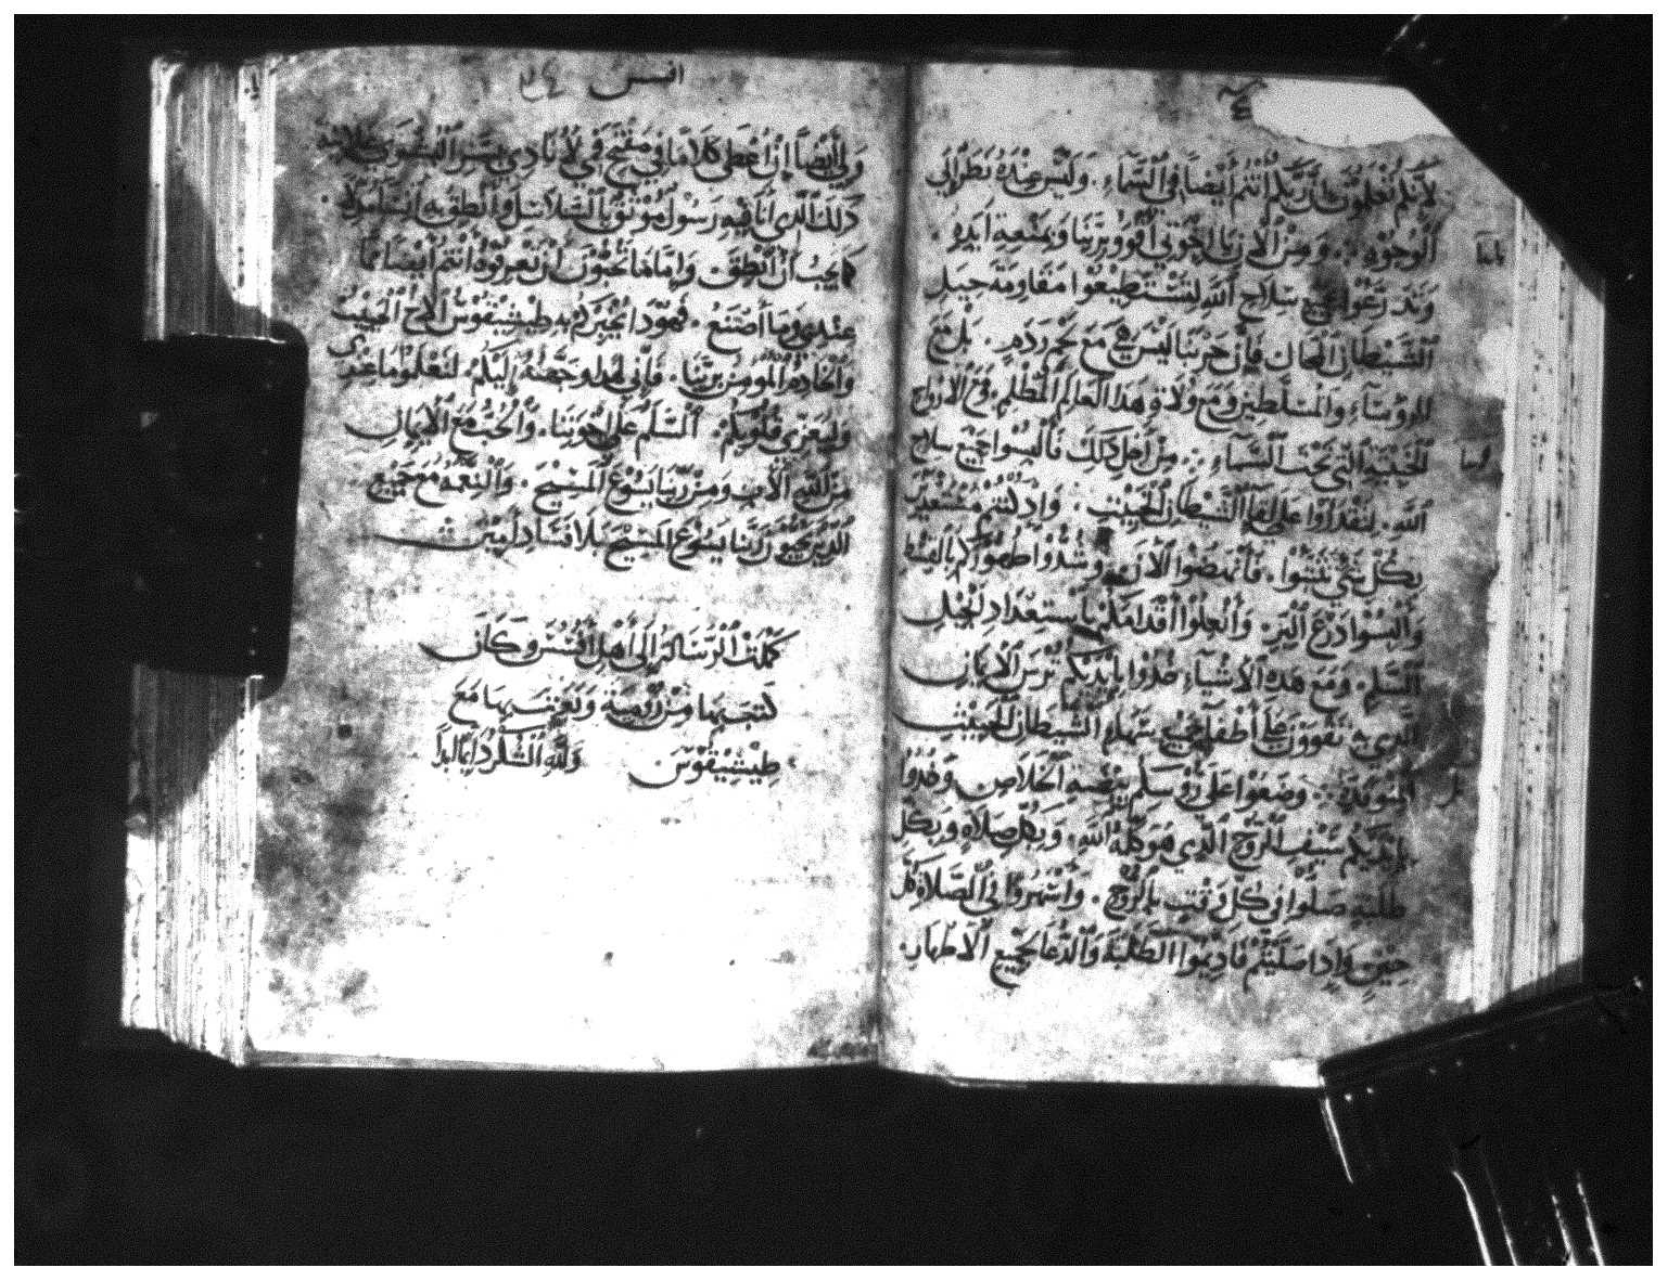 لأنكم تعلمون ان ربكم أنتم أيضا في السماء. وليس عنده نظر إلى
الوجوه. ومن الان يا اخوتي اقووا بربنا وبمنعة ايده.
وتدرعوا جميع سلاح الله لتستطيعوا مقاومة حيل
الشيطان المحال فإن حربنا ليس هي مع لحم ردم. بل مع
الرؤساء والمسلطين ومع ولاة هذا العالم المظلم. ومع الارواح
الخبيثة التي تحت السماء. من اجل ذلك فالبسوا جميع سلاح
الله. لتقدروا على لقاء الشيطان الخبيث. واذ كنتم مستعدين
بكل شي تثبتوا. فانهضوا الان وشدوا ظهوركم بالقسط
والبسوا درع البر. وانعلوا اقدامكم باستعداد انجيل
السلم. ومع هذه الاشياء خذوا بايديكم ترس الايمان
الذي به تقوون على أطفا جميع سهام الشيطان الخبيث
المتوقدة. وضعوا على رؤسكم بيضة الخلاص وخذوا
بايديكم سيف الروح الذي هو كلمة الله. وبكل صلاة وبكل
طلبة صلوا في كل وقت بالروح. واسهروا في الصلاة كل
حين وإذا صليتم فاديموا الطلبة والدعا لجميع الاطهار.
افسس
ولي أيضا إن أعطى كلاما في مفتح في لأنادي بسر البشرى علانية
ذلك الذي أنا فيه رسول موثوق بالسلاسل وانطق به
كما يجب أن أنطق. وإما ما تحبون أن تعرفوه أنتم أيضا مما
عندي وما أصنع. فهوذا يخبركم به طيشيقوس الاخ الحبيب
والخادم المؤمن بربنا. فإني لهذا وجهته إليكم لتعلموا ما عندي
وليعزي قلوبكم. السلم على اخوتنا. والحب مع الايمان
من الله الاب ومن ربنا يسوع المسيح. والنعمة مع جميع
الذين يحبون ربنا يسوع المسيح بلا فساد امين
كملت الرسالة إلى أهل افسس وكان
كتب بها من رومية وبعث بها مع
طيشيقوس ولله الشكر دايما ابدا